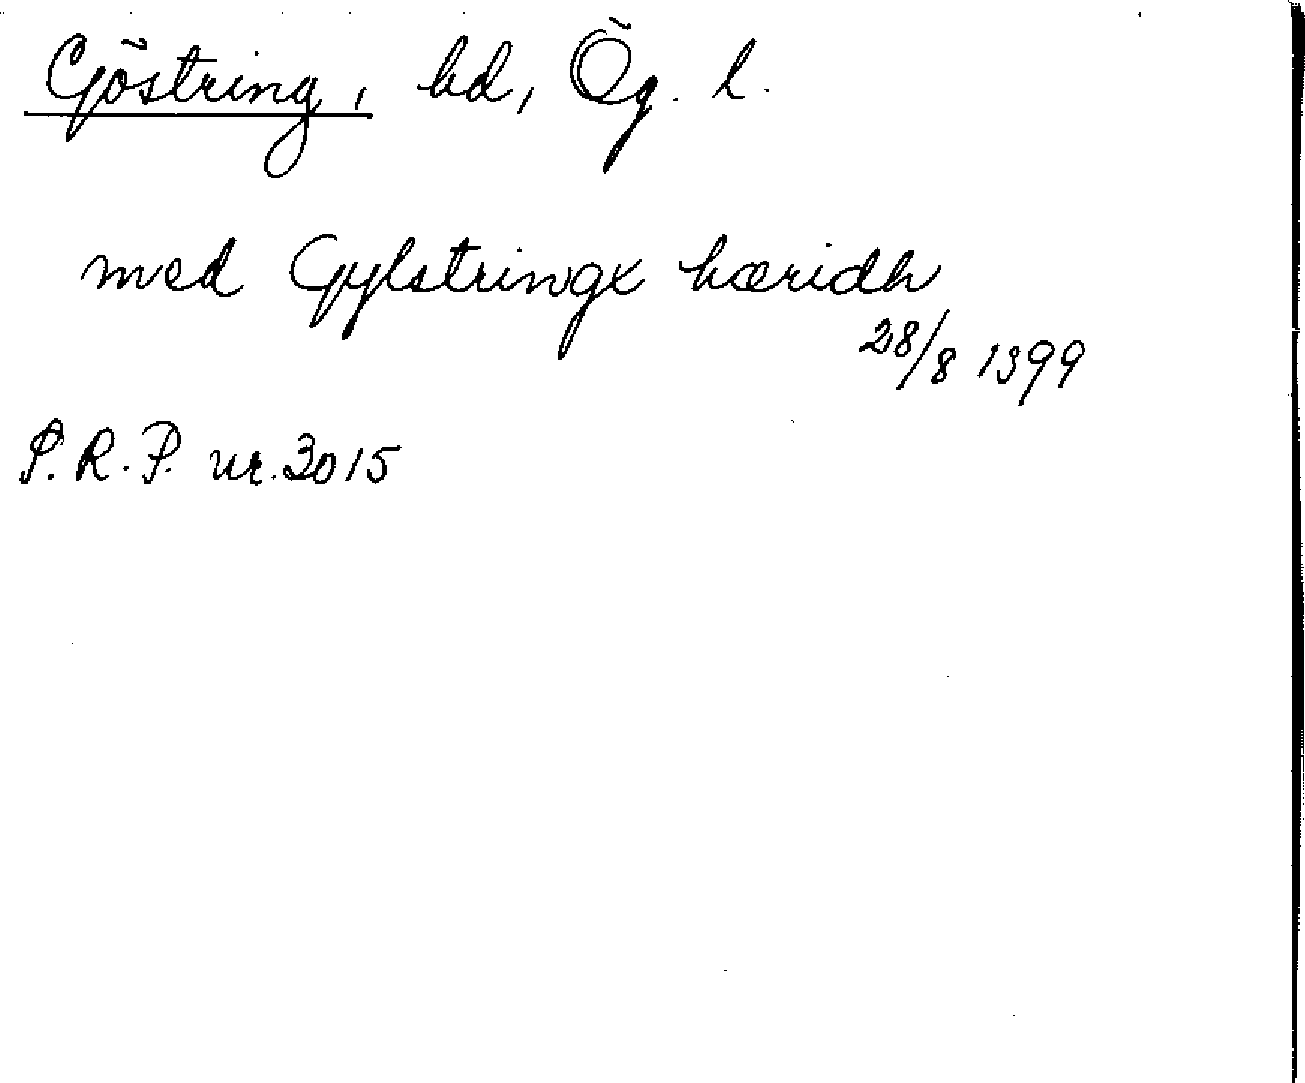 Göstring, hd, Ög. l.
med Gylstringx hæridh
28/8 1399
P.R.P. nr. 3015